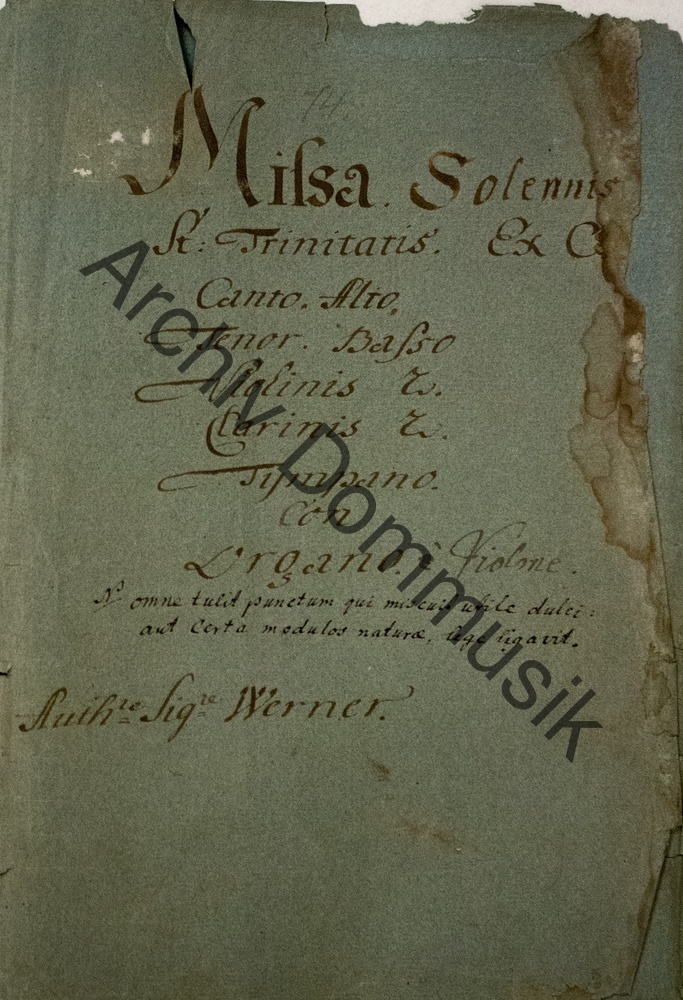 74.
Missa. Solennis
St: Trinitatis. Ex C
Canto. Alto.
Tenor. Basso
Violinis 2.
Clarinis 2.
Tympano.
Con
Organo. è Violone.
omne tulit punctum qui miscuit utile dulci:
aut Certa modulos naturæ, ligavit.
Auth:re Sig:re Werner.
Archiv Dommusik